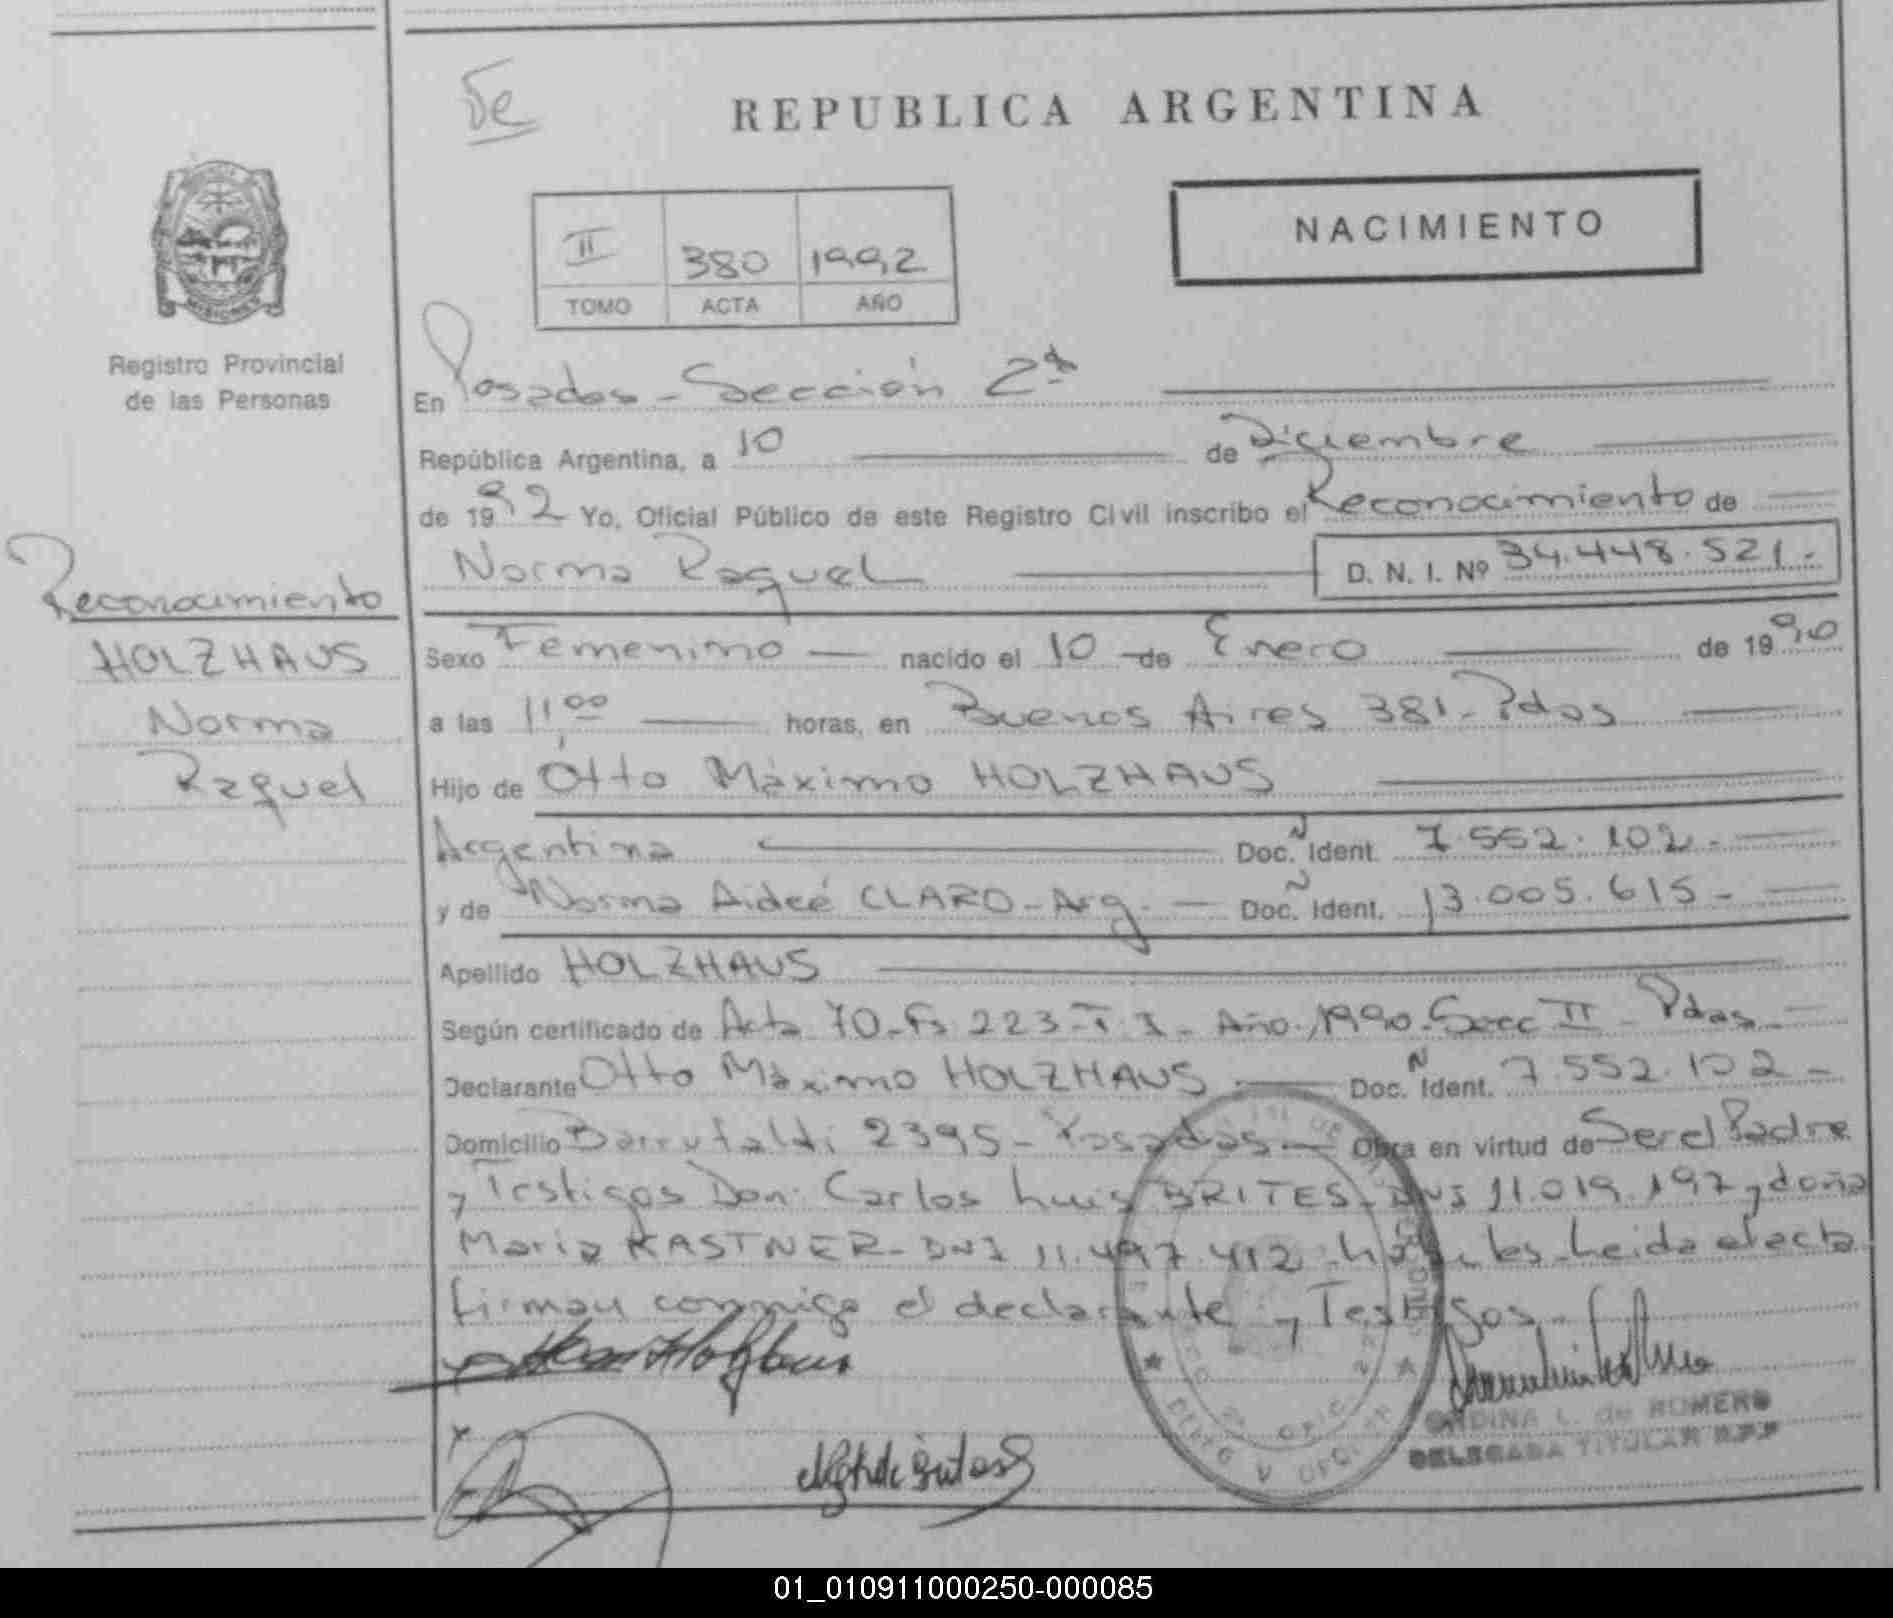 De
REPUBLICA ARGENTINA
NACIMIENTO
II 380 1992
TOMO ACTA AÑO
MISIONES
Registro Provincial
de las Personas
En Posadas - Sección 2ª
República Argentina, a 10 de Diciembre
de 1992 Yo, Oficial Público de este Registro Civil inscribo el Reconocimiento de
Norma Raquel D. N. I. Nº 34.448.521.-
Reconocimiento
HOLZHAUS
Norma
Raquel
Sexo Femenino nacido el 10 de Enero de 1990
a las 11 00 horas, en Buenos Aires 381 - Pdas
Hijo de Otto Máximo HOLZHAUS
Argentina Doc. Ident. 7.552.102.-
y de Norma Aideé CLARO - Arg. Doc. Ident. 13.005.615-
Apellido HOLZHAUS
Según certificado de Acta 70 - Fs 223 - T. I - Año 1990 - Secc II - Pdas -
Declarante Otto Máximo HOLZHAUS Doc. Ident. 7.552.102-
Domicilio 2395 - Posadas - Obra en virtud de Ser el Padre
y Testigos Don: Carlos Luis BRITES - DNI 11.019.197 y doña
Maria KASTNER - DNI 11.497.412 les Leida el acta
firman conmigo el declarante y Testigos.
ONDINA L. de ROMERO
DELEGADA TITULAR R.P.P
01_010911000250-000085